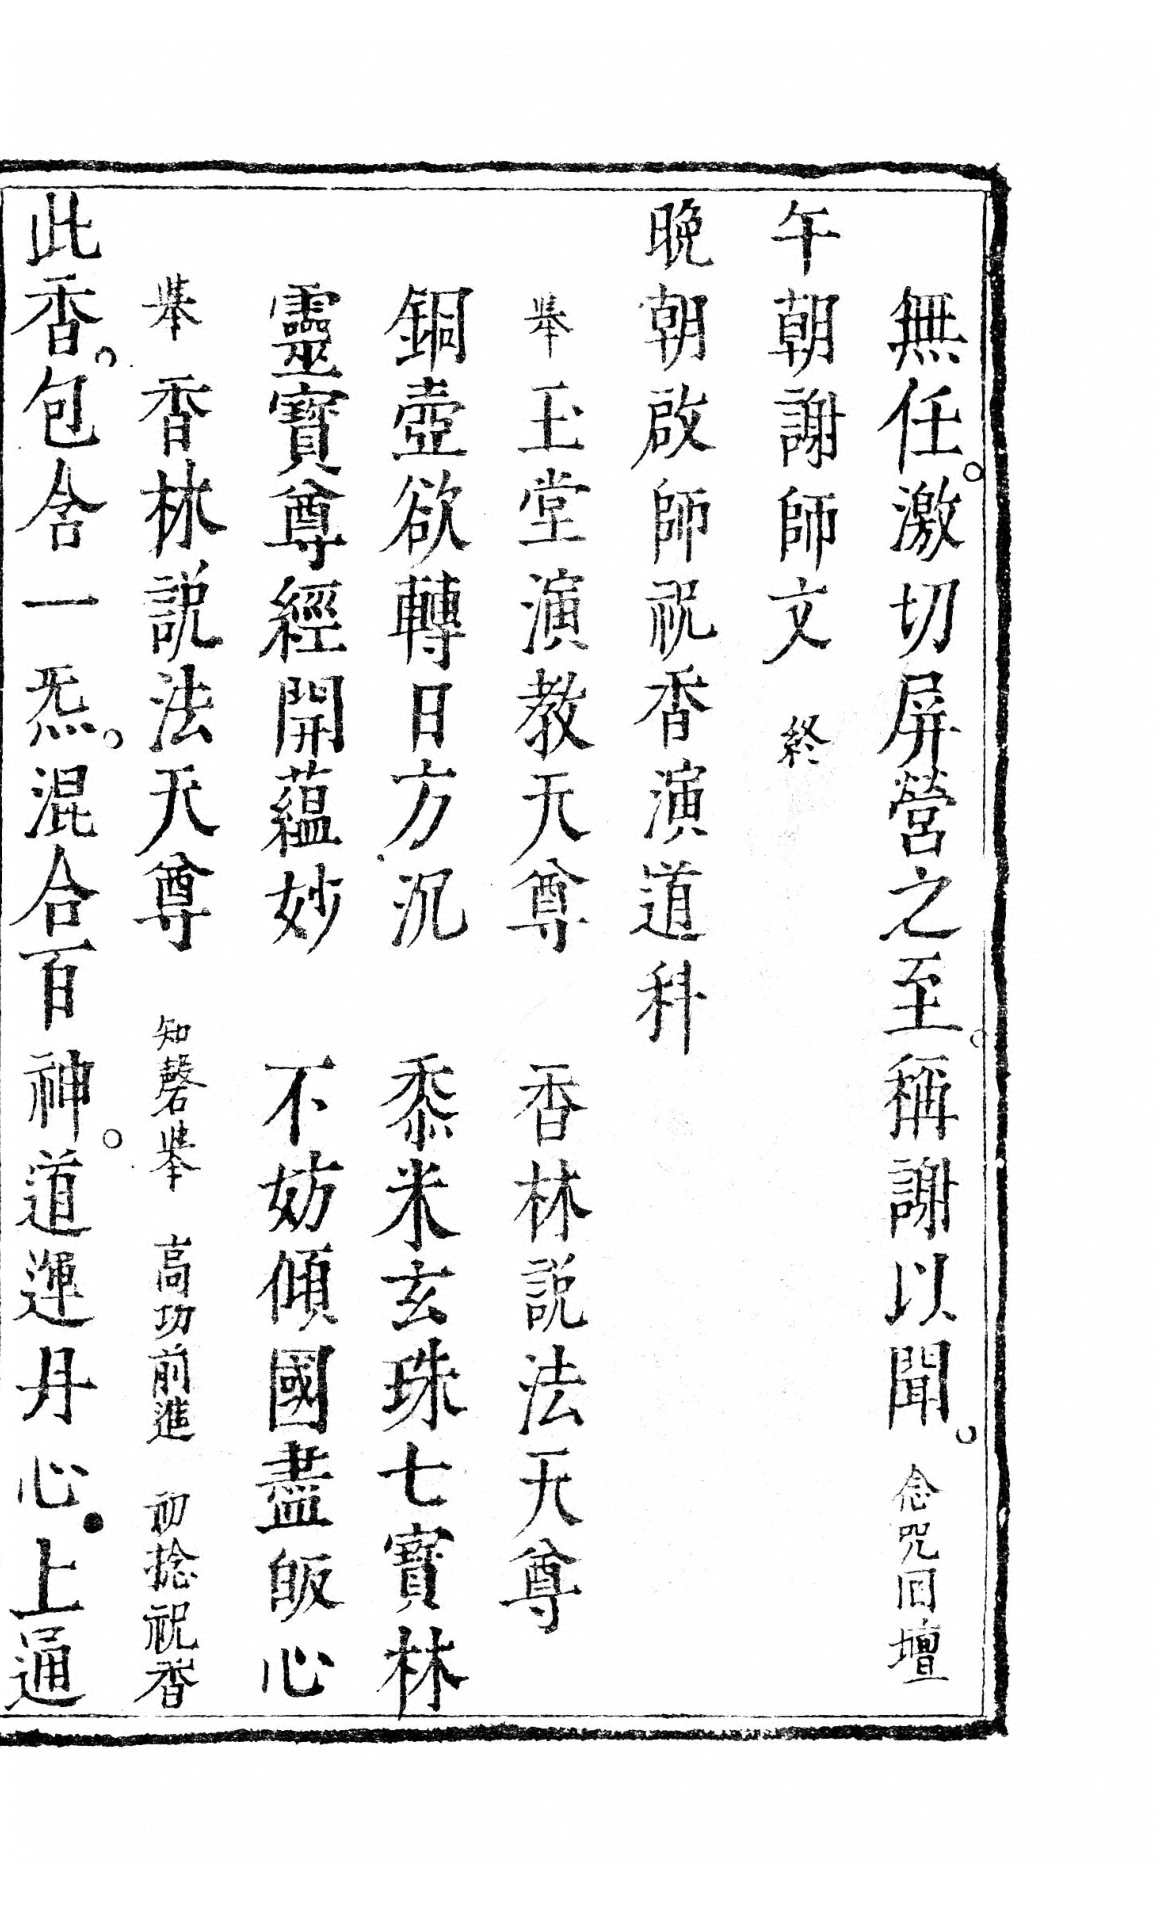 無任。激切屏營之至。稱謝以聞。念咒回壇
午朝謝師文 終
晚朝啟師祝香演道科
舉 玉堂演教天尊 香林説法天尊
銅壺欲轉日方沉 黍米玄珠七寶林
靈寶尊經開蘊妙 不妨傾國盡皈心
舉 香林説法天尊 知磬舉 高功前進 初捻祝香
此香。包含一炁。混合百神。道運丹心。上通